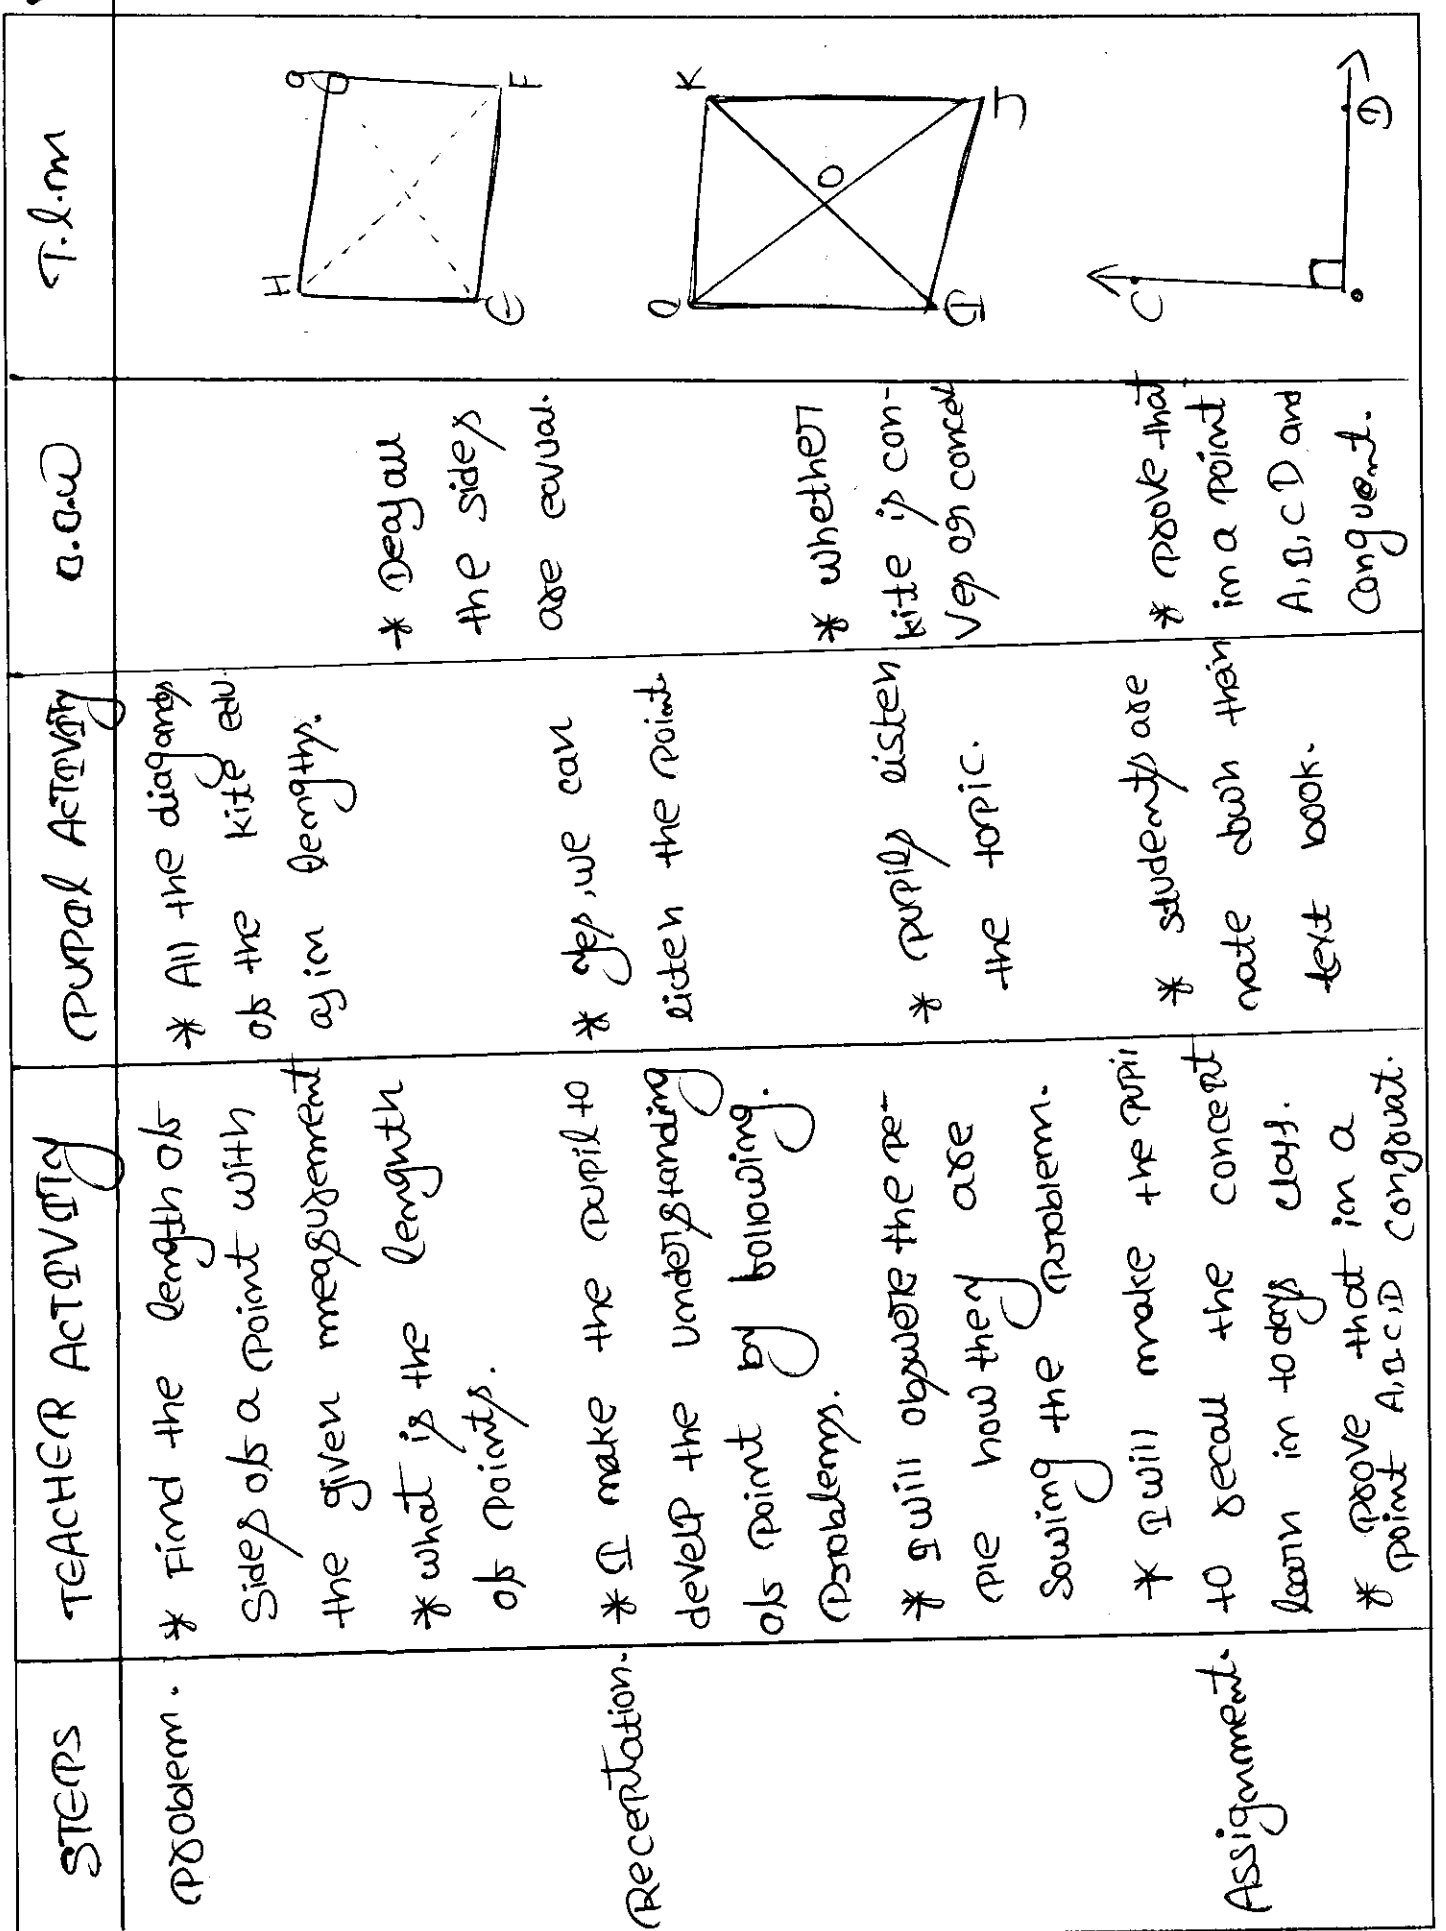 STEPS
TEACHER ACTIVITY
PUPAL ACTIVITY
B.B.W
T.l.m
Problem.
* Find the length of
Sides of a point with
the given measurement
* what is the lenghth
of points.
* All the diagonals
of the kite equ.
as in lengths.
* Deas all
the sides
are equal.
H
G
E
F
Receptation.
* I make the pupil to
develp the understanding
of point by following
Problems.
* I will obsuere the pe-
ple how they are
Sowing the problem.
* yes, we can
listen the point.
* pupils listen
the topic.
* whether
kite is con-
ves or concev
K
O
I
J
Assignment.
* I will make the pupil
to recall the concept
learn in todays class.
* prove that in a
point A,B,C,D congruat.
* students are
nate down their
text book.
* prove that
in a point
A,B,C D and
Conguent.
C
D